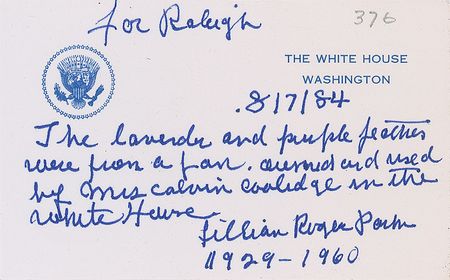 for Raleigh
376
THE WHITE HOUSE
WASHINGTON
8/7/84
The lavender and purple feathers
were from a fan. owned and used
by Mrs Calvin Coolidge in the
White House.
Lillian Rogers Parks
1929-1960